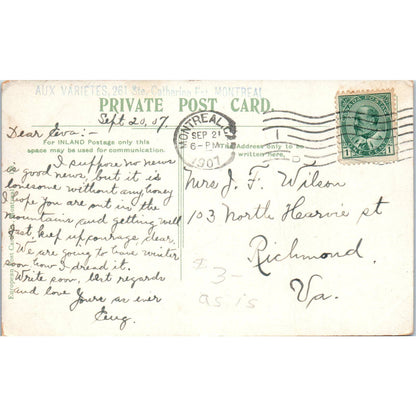 AUX VARIETES, 261 Ste. Catherine Est, MONTREAL
PRIVATE POST CARD.
Sept. 20, 07
Dear Eva:-
For INLAND Postage only this
space may be used for communication.
I suppose no news
is good news, but it is
lonesome without any, honey
I hope you are out in the
mountains and getting well
fast, keep up courage, dear.
We are going to have winter
soon how I dread it.
Write soon, best regards
and love
Yours as ever
MONTREAL
SEP 21
6-PM
1907
Address only to be
written here.
Mrs J. F. Wilson
103 North Harvie st
Richmond
Va.
3-
as is
1
European Post Card